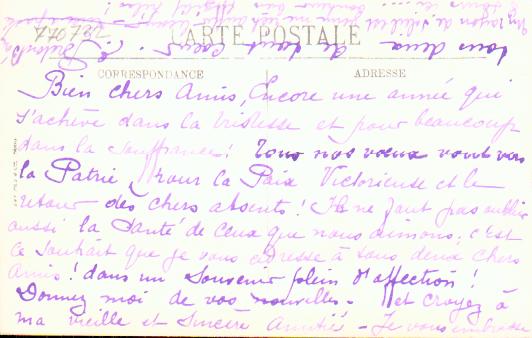 770782
CARTE POSTALE
CORRESPONDANCE
ADRESSE
Bien chers Amis, Encore une année qui
s'achève dans la tristesse et pour beaucoup
dans la souffrance! Tous nos vœux vont vers
la Patrie, pour la Paix Victorieuse et le
retour des chers absents! Il ne faut pas oublier
aussi la Santé de ceux que nous aimons; c'est
ce souhait que je vous adresse à tous deux chers
Amis! dans un Souvenir plein d'affection!
Donnez moi de vos nouvelles - et croyez à
ma vieille et sincère Amitié - Je vous embrasse
tous deux de tout cœur